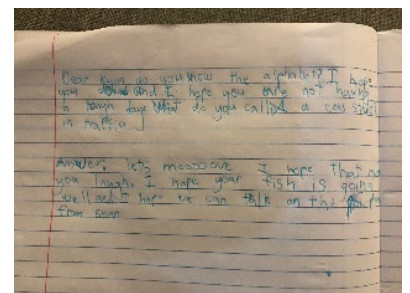 Dear Kyan do you know the alphabut? I hope
you and I hope you are not having
a tough day what do you call a cow stuck
in
Answer: lets mooove I hope that
you laugh. I hope your fish is going
well and I hope we can talk on the
from